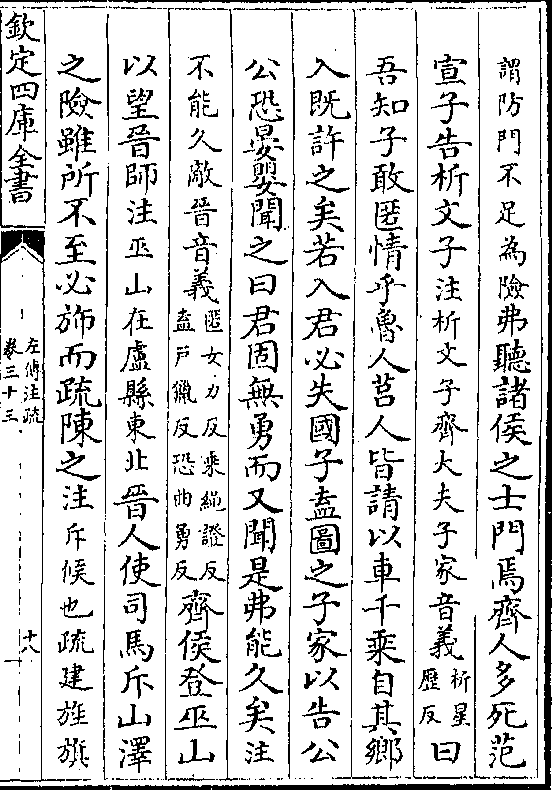 謂防門不足為險弗聽諸侯之士門焉齊人多死范
宣子告析文子注析文子齊大夫子家音義析星歷反曰
吾知子敢匿情乎魯人莒人皆請以車千乘自其鄉
入既許之矣若入君必失國子盍圖之子家以告公
公恐晏嬰聞之曰君固無勇而又聞是弗能久矣注
不能久敵晉音義匿女力反乘繩證反盍戸獵反恐曲勇反齊侯登巫山
以望晉師注巫山在盧縣東北晉人使司馬斥山澤
之險雖所不至必斾而疏陳之注斥候也疏建旌旗
欽定四庫全書
左傳注疏
卷三十三
十八